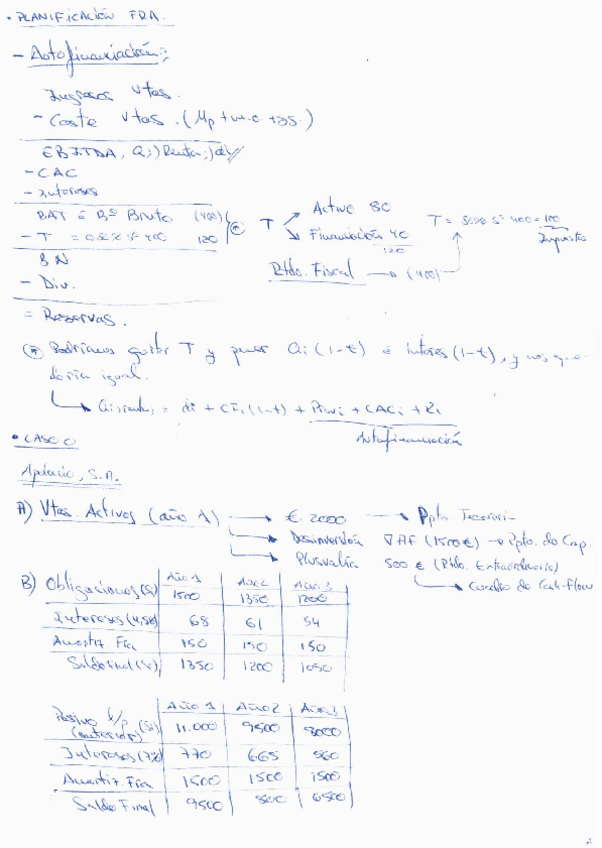 • PLANIFICACIÓN FRA.
- Autofinanciación:
Ingresos Vtas.
- Coste Vtas. (Mp + m.o. +
EBITDA,
- CAC
- Intereses
BAT = Bº Bruto (400)
- T = 400 120
BN
- Div.
= Reservas.
T Activo 80
Financiación 40
120
Rtdo. Fiscal → (400)
T = 400 = 120
Impuesto
Podríamos quitar T y poner Qi (1-t) e interés (1-t), y nos que-
daría igual.
= di + CFi (1-t) + + CACi + Ri
Autofinanciación
• CASO 0
S.A.
A) Vtas. Activos (año 1) → € 2000 → Ppto. Tesorería
Desinversión ∇ AF (1500€) → Ppto. de Cap.
Plusvalía 500 € (Rtdo. Extraordinario)
Cuadro de Cash-flow
B) Obligaciones (Si) Año 1 Año 2 Año 3
1500 1350 1200
Intereses (4,5%) 68 61 54
Amortiz. Fra 150 150 150
Saldo Final (Si) 1350 1200 1050
Año 1 Año 2 Año 3
Pasivo l/p (Si) 11.000 9500 8000
(anterior)
Intereses (7%) 770 665 560
Amortiz. Fra 1500 1500 1500
Saldo Final 9500 6500